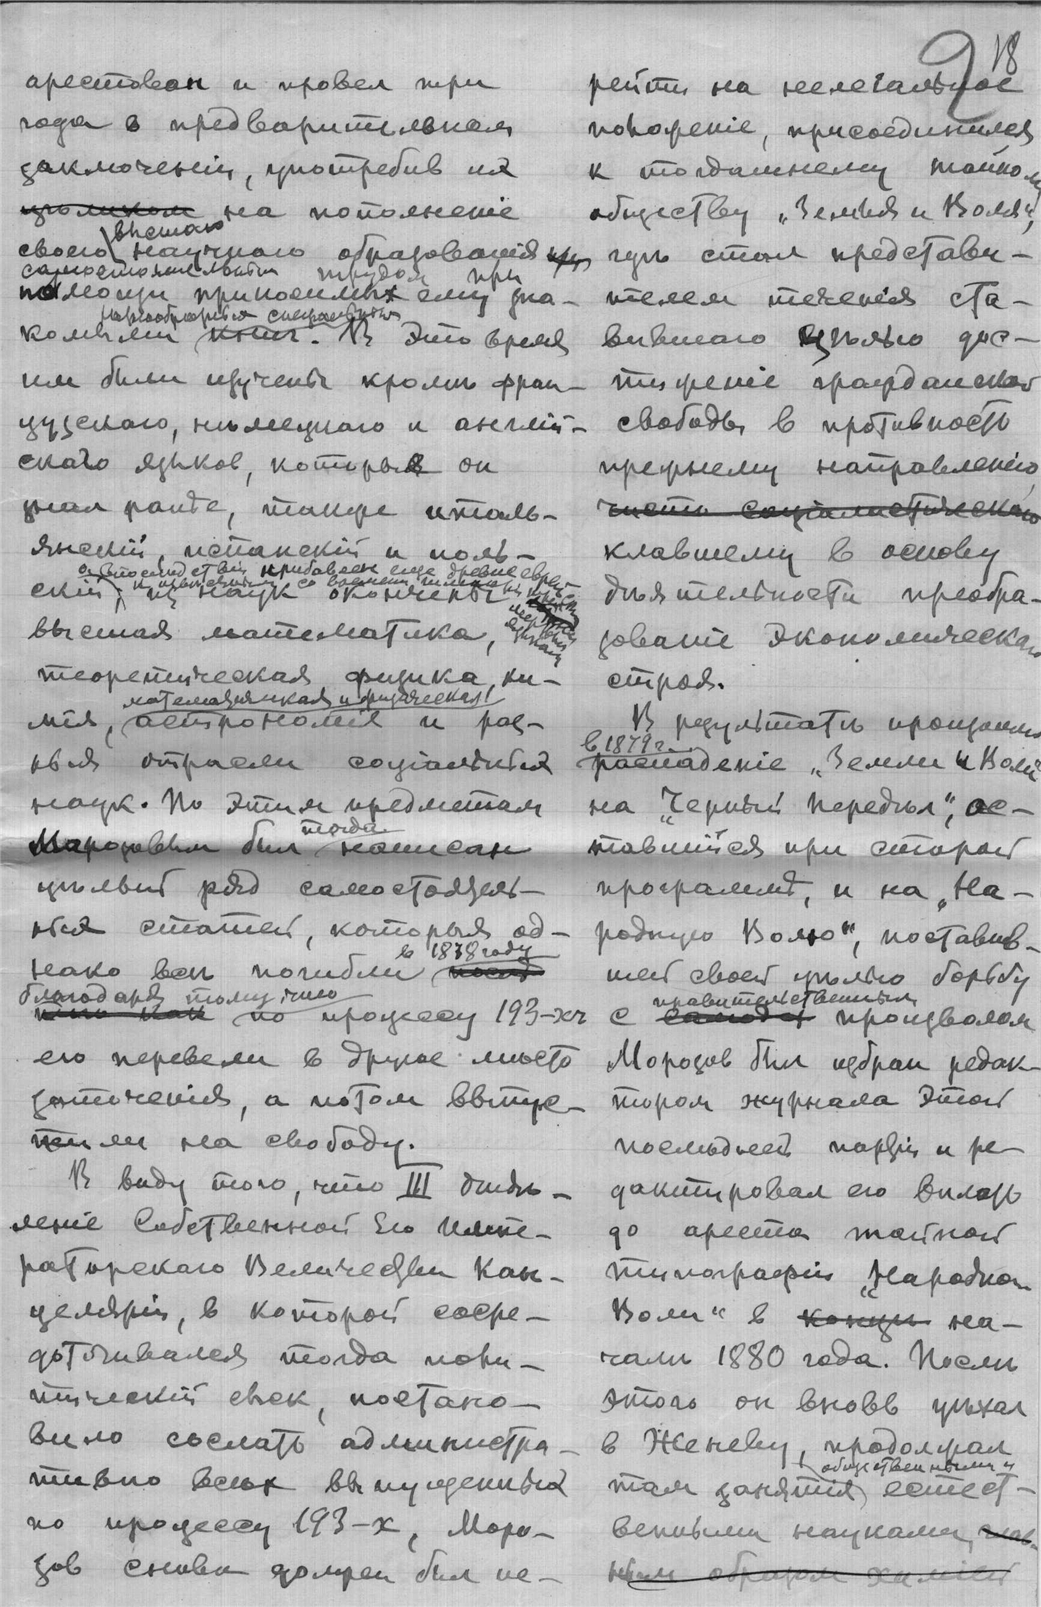 18
арестован и провел три
года в предварительном
заключеніи, употребив их
цѣликом на пополненіе
высшаго
своего научнаго образованія
самостоятельным трудом при
помощи приносимых ему зна-
комыми книг. В это время
им были изучены кромѣ фран-
цузскаго, нѣмецкаго и англій-
скаго языков, которые он
знал раньше, также италь-
янскій, испанскій и поль-
а впослѣдствіи прибавлен еще древне евре-
скій, из наук окончены
высшая математика,
теоретическая физика, хи-
математическая и физическая
мія, астрономія и раз-
ныя отрасли соціальных
наук. По этим предметам
тогда
Морозовым был написан
цѣлый ряд самостоятель-
ных статей, которыя од-
в 1878 году
нако всѣ погибли послѣ
благодаря тому, что
того как по процессу 193-х
его перевели в другое мѣсто
заточенія, а потом выпус-
тили на свободу.
В виду того, что III отдѣ-
леніе Собственной Его Импе-
раторскаго Величества Кан-
целяріи, в которой сосре-
доточивался тогда поли-
тическій сыск, постано-
вило сослать администра-
тивно всѣх выпущенных
по процессу 193-х, Моро-
зов снова должен был пе-
рейти на нелегальное
положеніе, присоединился
к тогдашнему тайному
обществу „Земля и Воля",
гдѣ стал представи-
телем теченія ста-
вившаго цѣлью дос-
тиженіе гражданской
свободы в противность
прежнему направленію,
чисто соціалистическому
клавшему в основу
дѣятельности преобра-
зованіе экономическаго
строя.
В результатѣ произошло
в 1879 г.
распаденіе „Земли и Воли"
на „Черный Передѣл", ос-
тавшійся при старой
программѣ, и на „На-
родную Волю", поставив-
шей своей цѣлью борьбу
правительственным
с самодер произволом
Морозов был избран редак-
тором журнала этой
послѣдней партіи и ре-
дактировал его вплоть
до ареста тайной
типографіи „Народной
Воли" в концѣ на-
чалѣ 1880 года. Послѣ
этого он вновь уѣхал
в Женеву, продолжал
общественными и
там занятія естест-
венными науками, глав-
ным образом химіей